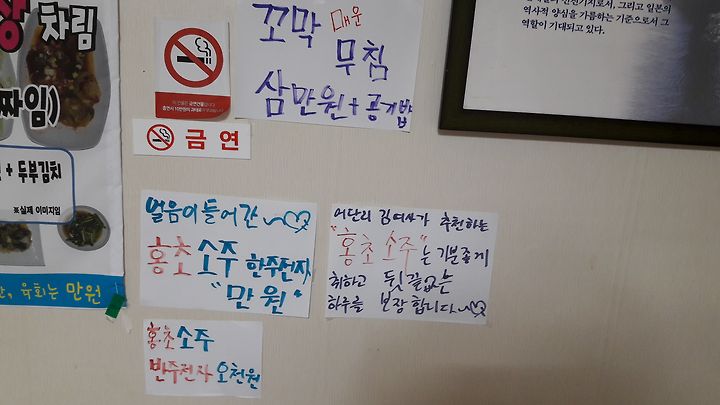 상 차림
짜임)
+ 두부김치
※실제 이미지임
육회는 만원
금 연
꼬막 매운
무침
삼만원 + 공기밥
역사적 양심을 가름하는 기준으로서 그
역할이 기대되고 있다.
얼음이 들어간
홍초소주 한주전자
"만원"
어단리 김여사가 추천하는
"홍초소주"는 기분좋게
취하고 뒷끝없는
하루를 보장합니다
홍초소주
반주전자 오천원